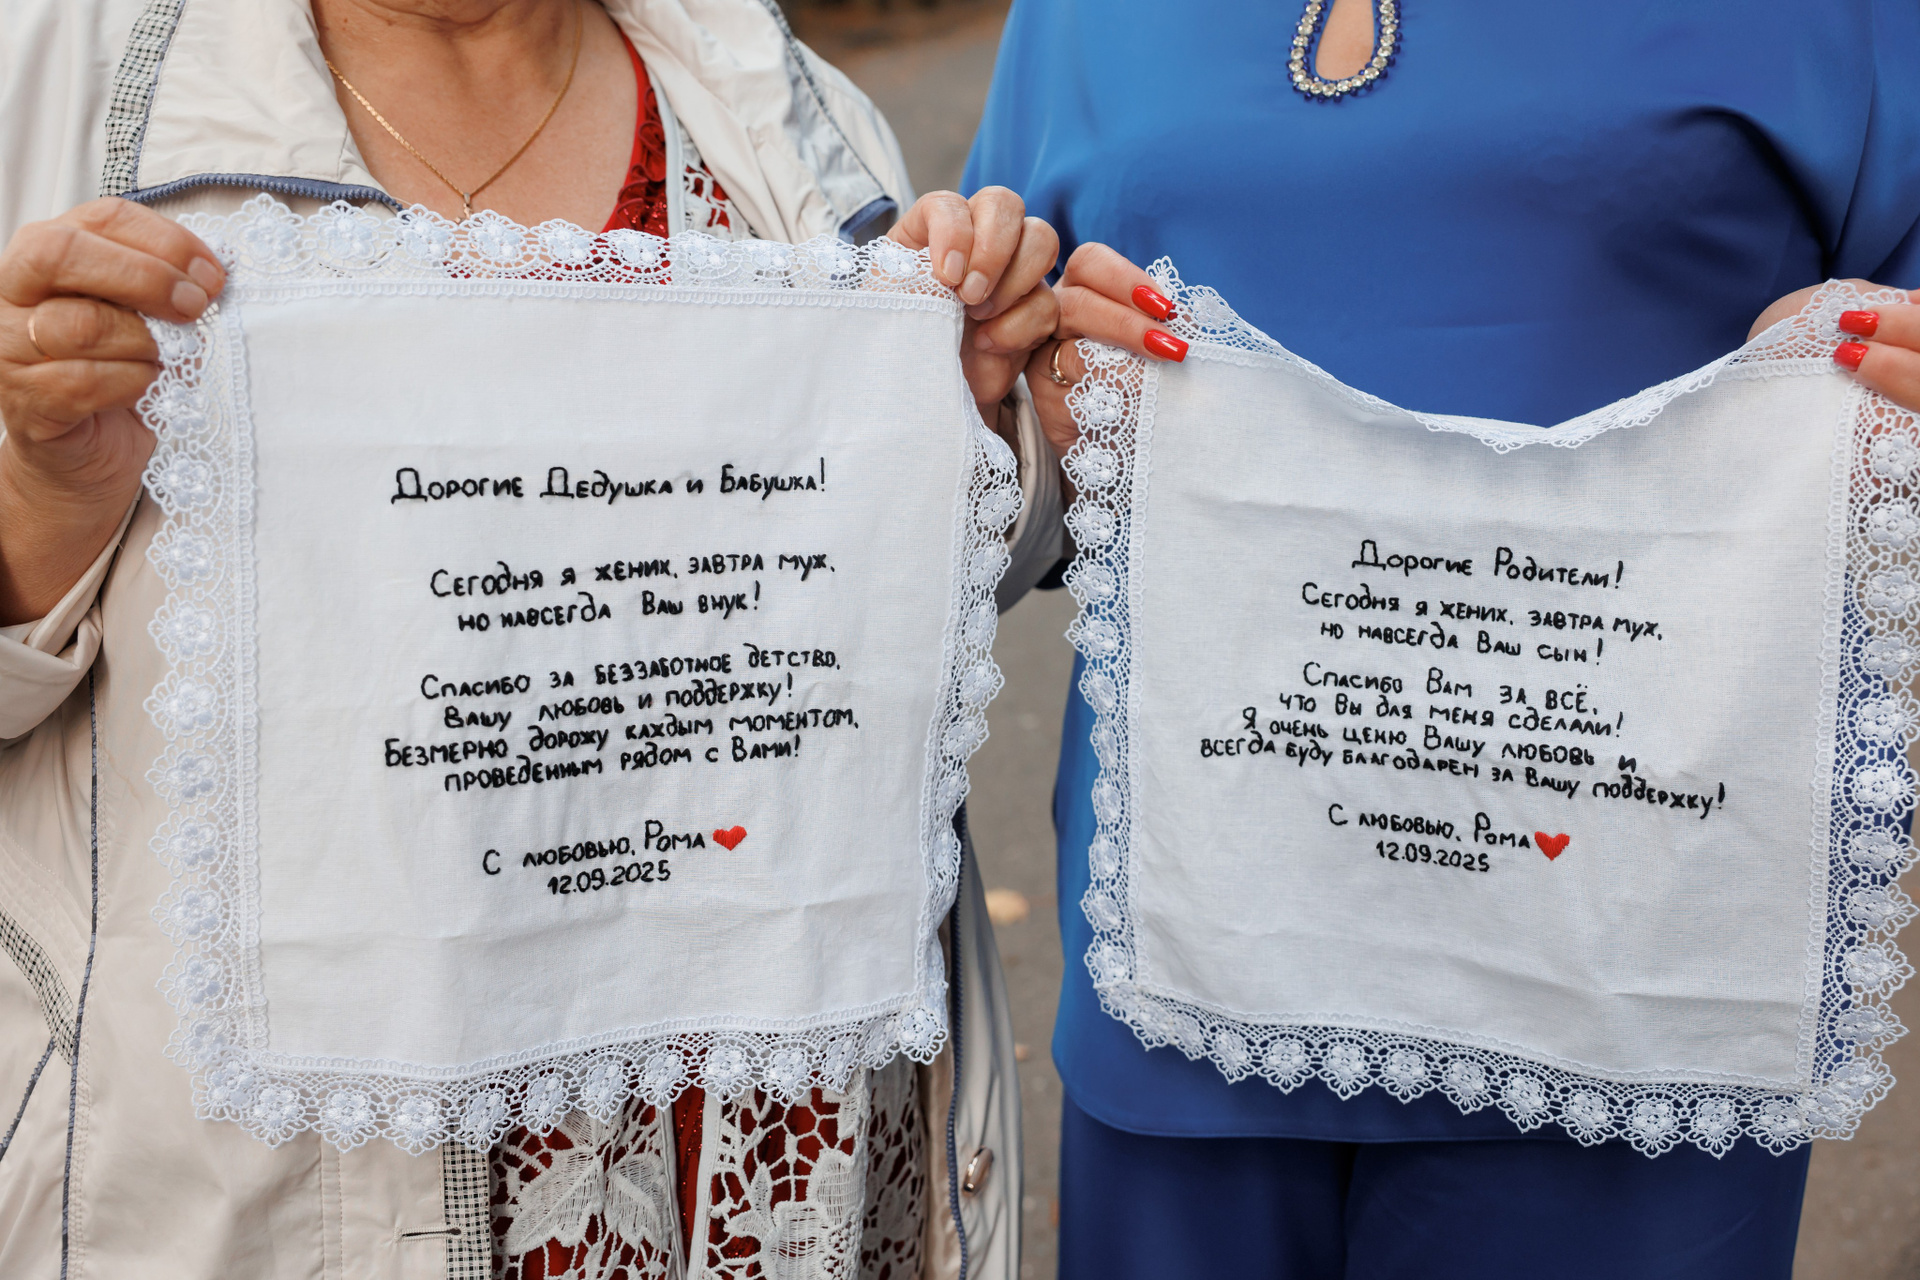 Дорогие Дедушка и Бабушка!
Сегодня я жених, завтра муж,
но навсегда Ваш внук!
Спасибо за беззаботное детство,
Вашу любовь и поддержку!
Безмерно дорожу каждым моментом,
проведенным рядом с Вами!
С любовью, Рома
12.09.2025
Дорогие Родители!
Сегодня я жених, завтра муж,
но навсегда Ваш сын!
Спасибо Вам за всё,
что Вы для меня сделали!
Я очень ценю Вашу любовь и
всегда буду благодарен за Вашу поддержку!
С любовью, Рома
12.09.2025